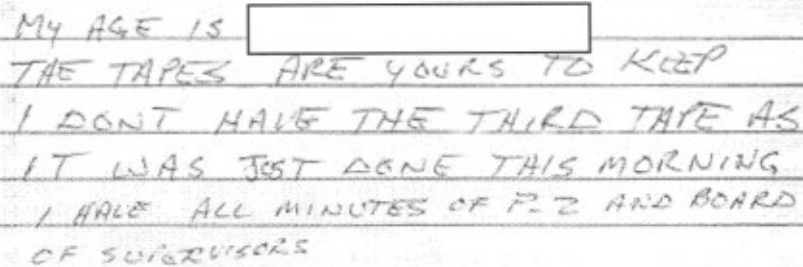 MY AGE IS
THE TAPES ARE YOURS TO KEEP
I DONT HAVE THE THIRD TAPE AS
IT WAS JUST DONE THIS MORNING
I HAVE ALL MINUTES OF P-Z AND BOARD
OF SUPERVISORS